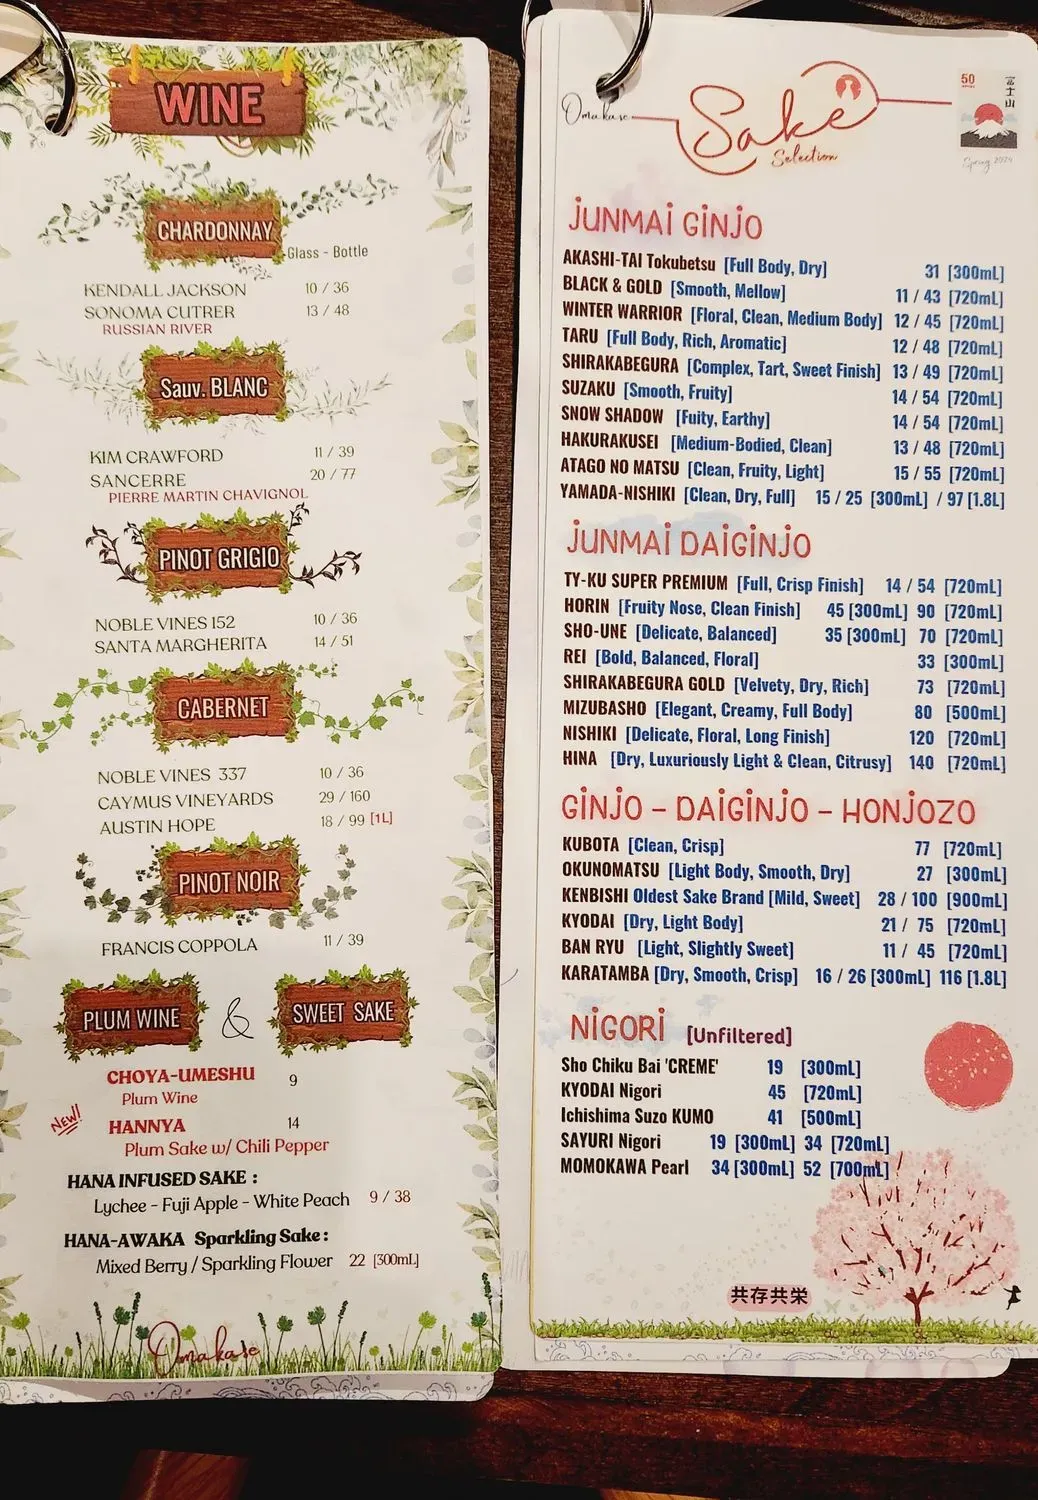 WINE
CHARDONNAY
Glass - Bottle
KENDALL JACKSON 10 / 36
SONOMA CUTRER 13 / 48
RUSSIAN RIVER
Sauv. BLANC
KIM CRAWFORD 11 / 39
SANCERRE 20 / 77
PIERRE MARTIN CHAVIGNOL
PINOT GRIGIO
NOBLE VINES 152 10 / 36
SANTA MARGHERITA 14 / 51
CABERNET
NOBLE VINES 337 10 / 36
CAYMUS VINEYARDS 29 / 160
AUSTIN HOPE 18 / 99 [1L]
PINOT NOIR
FRANCIS COPPOLA 11 / 39
PLUM WINE & SWEET SAKE
CHOYA-UMESHU 9
Plum Wine
NEW!
HANNYA 14
Plum Sake w/ Chili Pepper
HANA INFUSED SAKE :
Lychee - Fuji Apple - White Peach 9 / 38
HANA-AWAKA Sparkling Sake :
Mixed Berry / Sparkling Flower 22 [300mL]
Omakase
Omakase Sake Selection
50
富士山
Spring 2024
JUNMAI GINJO
AKASHI-TAI Tokubetsu [Full Body, Dry] 31 [300mL]
BLACK & GOLD [Smooth, Mellow] 11 / 43 [720mL]
WINTER WARRIOR [Floral, Clean, Medium Body] 12 / 45 [720mL]
TARU [Full Body, Rich, Aromatic] 12 / 48 [720mL]
SHIRAKABEGURA [Complex, Tart, Sweet Finish] 13 / 49 [720mL]
SUZAKU [Smooth, Fruity] 14 / 54 [720mL]
SNOW SHADOW [Fuity, Earthy] 14 / 54 [720mL]
HAKURAKUSEI [Medium-Bodied, Clean] 13 / 48 [720mL]
ATAGO NO MATSU [Clean, Fruity, Light] 15 / 55 [720mL]
YAMADA-NISHIKI [Clean, Dry, Full] 15 / 25 [300mL] / 97 [1.8L]
JUNMAI DAIGINJO
TY-KU SUPER PREMIUM [Full, Crisp Finish] 14 / 54 [720mL]
HORIN [Fruity Nose, Clean Finish] 45 [300mL] 90 [720mL]
SHO-UNE [Delicate, Balanced] 35 [300mL] 70 [720mL]
REI [Bold, Balanced, Floral] 33 [300mL]
SHIRAKABEGURA GOLD [Velvety, Dry, Rich] 73 [720mL]
MIZUBASHO [Elegant, Creamy, Full Body] 80 [500mL]
NISHIKI [Delicate, Floral, Long Finish] 120 [720mL]
HINA [Dry, Luxuriously Light & Clean, Citrusy] 140 [720mL]
GINJO - DAIGINJO - HONJOZO
KUBOTA [Clean, Crisp] 77 [720mL]
OKUNOMATSU [Light Body, Smooth, Dry] 27 [300mL]
KENBISHI Oldest Sake Brand [Mild, Sweet] 28 / 100 [900mL]
KYODAI [Dry, Light Body] 21 / 75 [720mL]
BAN RYU [Light, Slightly Sweet] 11 / 45 [720mL]
KARATAMBA [Dry, Smooth, Crisp] 16 / 26 [300mL] 116 [1.8L]
NIGORI [Unfiltered]
Sho Chiku Bai 'CREME' 19 [300mL]
KYODAI Nigori 45 [720mL]
Ichishima Suzo KUMO 41 [500mL]
SAYURI Nigori 19 [300mL] 34 [720mL]
MOMOKAWA Pearl 34 [300mL] 52 [700mL]
共存共栄